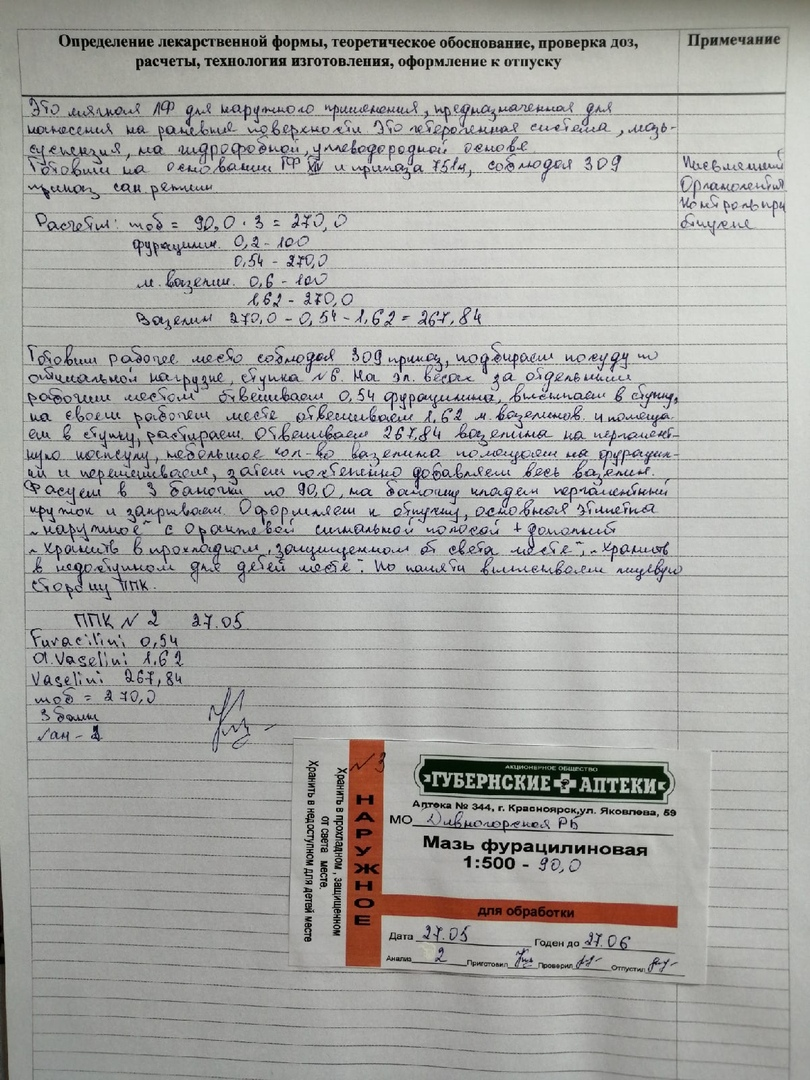 Определение лекарственной формы, теоретическое обоснование, проверка доз,
расчеты, технология изготовления, оформление к отпуску
Примечание
Это мягкая ЛФ для наружного применения, предназначенная для
нанесения на раневые поверхности. Это гетерогенная система, мазь-
суспензия, на гидрофобной, углеводородной основе.
Готовим на основании ГФ XIV и приказа 751н, соблюдая 309
приказ сан. режим
Письменный
Органолептич
Контроль при
отпуске
Расчеты: mоб = 90,0 · 3 = 270,0
фурацилин. 0,2 - 100
0,54 - 270,0
м. вазелин. 0,6 - 100
1,62 - 270,0
Вазелин 270,0 - 0,54 - 1,62 = 267,84
Готовим рабочее место соблюдая 309 приказ, подбираем посуду по
оптимальной нагрузке, ступка №6. На эл. весах за отдельным
рабочим местом отвешиваем 0,54 фурацилина, высыпаем в ступку,
на своем рабочем месте отвешиваем 1,62 м. вазелинов. и помеща-
ем в ступку, растираем. Отвешиваем 267,84 вазелина на пергамент-
ную капсулу, небольшое кол-во вазелина помещаем на фурацили-
н и перемешиваем, затем постепенно добавляем весь вазелин.
Фасуем в 3 баночки по 90,0, на баночку кладем пергаментный
кружок и закрываем. Оформляем к отпуску, основная этикетка
„наружное" с оранжевой сигнальной полосой + дополнит
„хранить в прохладном, защищенном от света месте", „хранить
в недоступном для детей месте". По памяти выписываем лицевую
сторону ППК.
ППК № 2 27.05
Furacilini 0,54
Ol. Vaselini 1,62
Vaselini 267,84
mоб = 270,0
3 банки
√ан - 2
Хранить в прохладном, защищенном
от света месте.
Хранить в недоступном для детей месте
№3
НАРУЖНОЕ
АКЦИОНЕРНОЕ ОБЩЕСТВО
«ГУБЕРНСКИЕ АПТЕКИ»
Аптека № 344, г. Красноярск,ул. Яковлева, 59
МО Дивногорская РБ
Мазь фурацилиновая
1:500 - 90,0
для обработки
Дата 27.05 Годен до 27.06
Анализ 2 Приготовил Проверил Отпустил